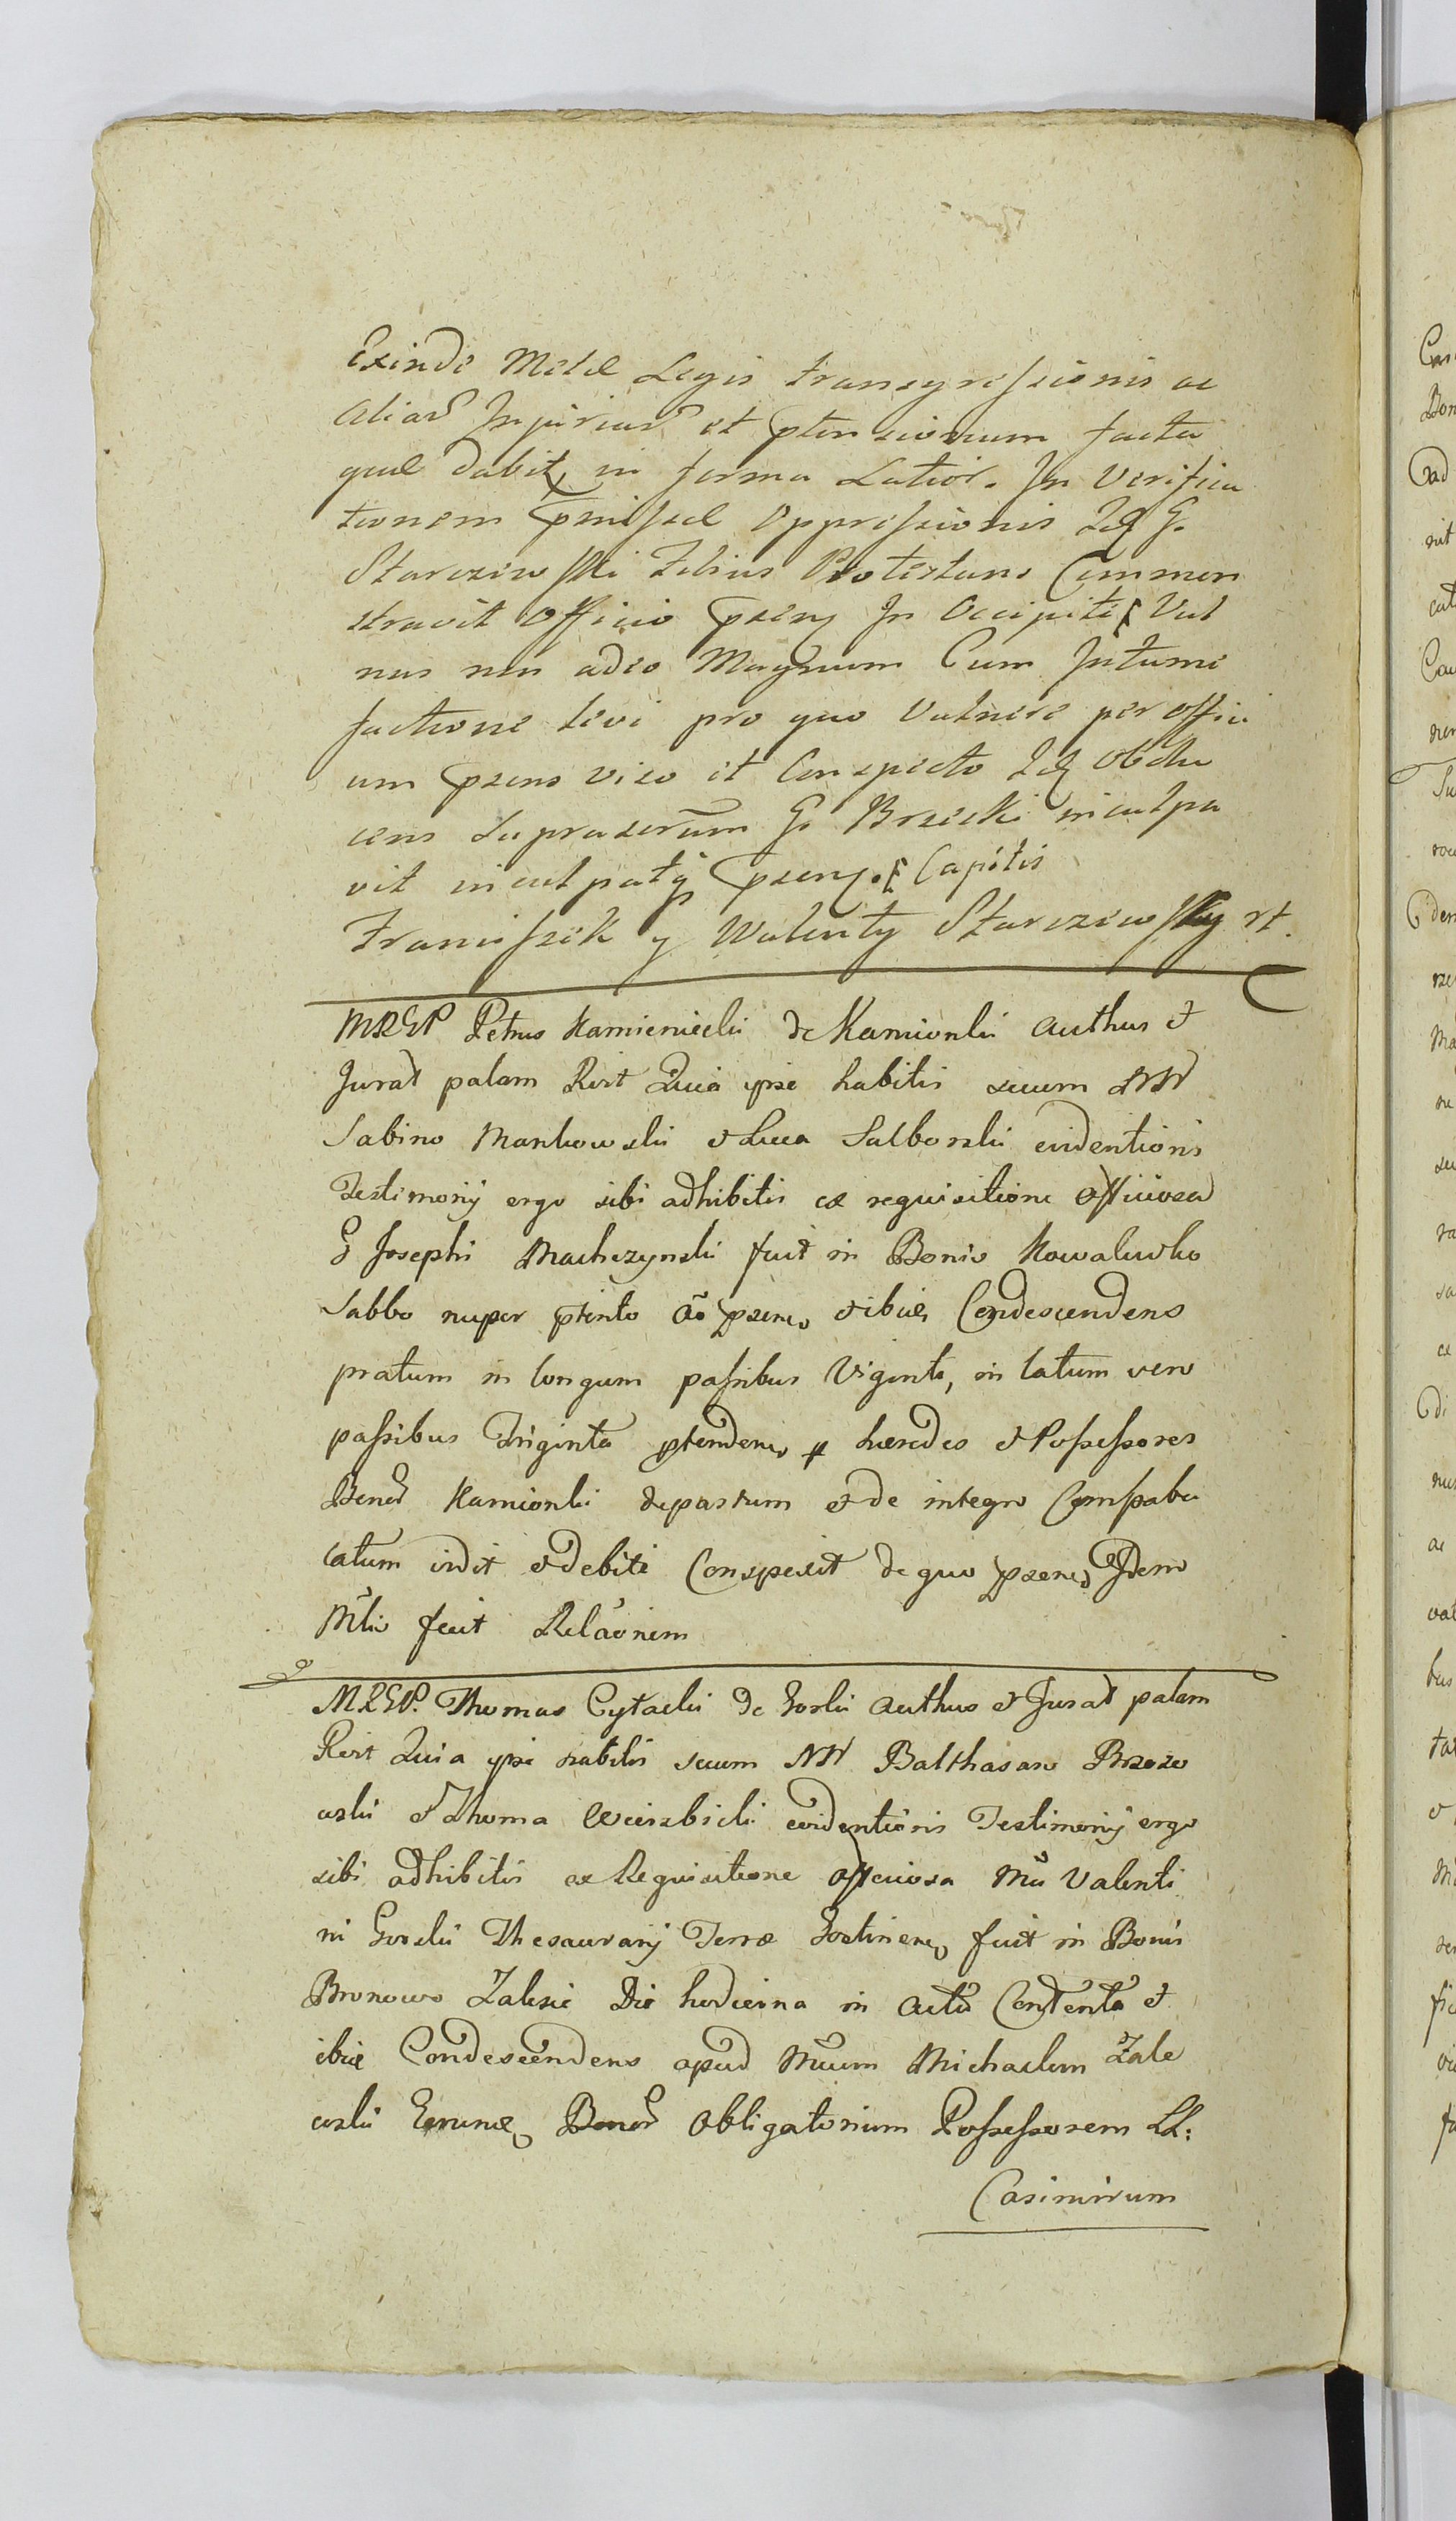 Exinde Metæ Legis transgressionis ac
Aliar Injuriar et ptensionum facta
quæ dabit in forma Latior. In Verifica
tionem pmissæ oppressionis Idq G.
Starczewski Filius Protestans Commen
stravit Officio psenq In Occipite Vul
nus non adeo Magnum Cum Intume
factione levi pro quo vulnere per offici
um psens viso et Conspecto Idq Obdu
cens Suprascrum G. Brzeski inculpa
vit inculpatq psenq. Capitis
Franciszek y Walenty Starczewsky rt.
MRGP Petrus Kamieniecki de Kamionki authus et
Jurat palam Rert Quia ipse habitis secum NN
Sabino Mankowski et Luca Salborski evidentioris
Testimonij ergo sibi adhibitis ex requisitione officiosa
G Josephi Machczynski fuit in Bonis Kowalewko
Sabbo nuper pterito Ao psenq et ibiq Condescendens
pratum in longum passibus Viginti, in latum vero
passibus Triginta ptendenq p hæredes et Possessores
Bonor Kamionki depastum et de integro Compabu
latum vidit et debite Conspexit de quo psenq Idem
Mlis fecit Relaonem
MRGP. Thomas Cytacki de Gorki authus et Jurat palam
Rert Quia ipse habitis secum NN Balthasaro Brzozo
wski et Thoma Wierzbicki evidentioris Testimonij ergo
sibi adhibitis ex Requisitione officiosa Mci Valenti
ni Gorski Thesaurarij Terræ Gostinenq fuit in Bonis
Bronowo Zalesie Die hodierna in actu Contenta et
ibiq Condescendens apud Mcum Michaelem Zale
wski Earumq Bonor obligatorium Possessorem LL:
Casimirum